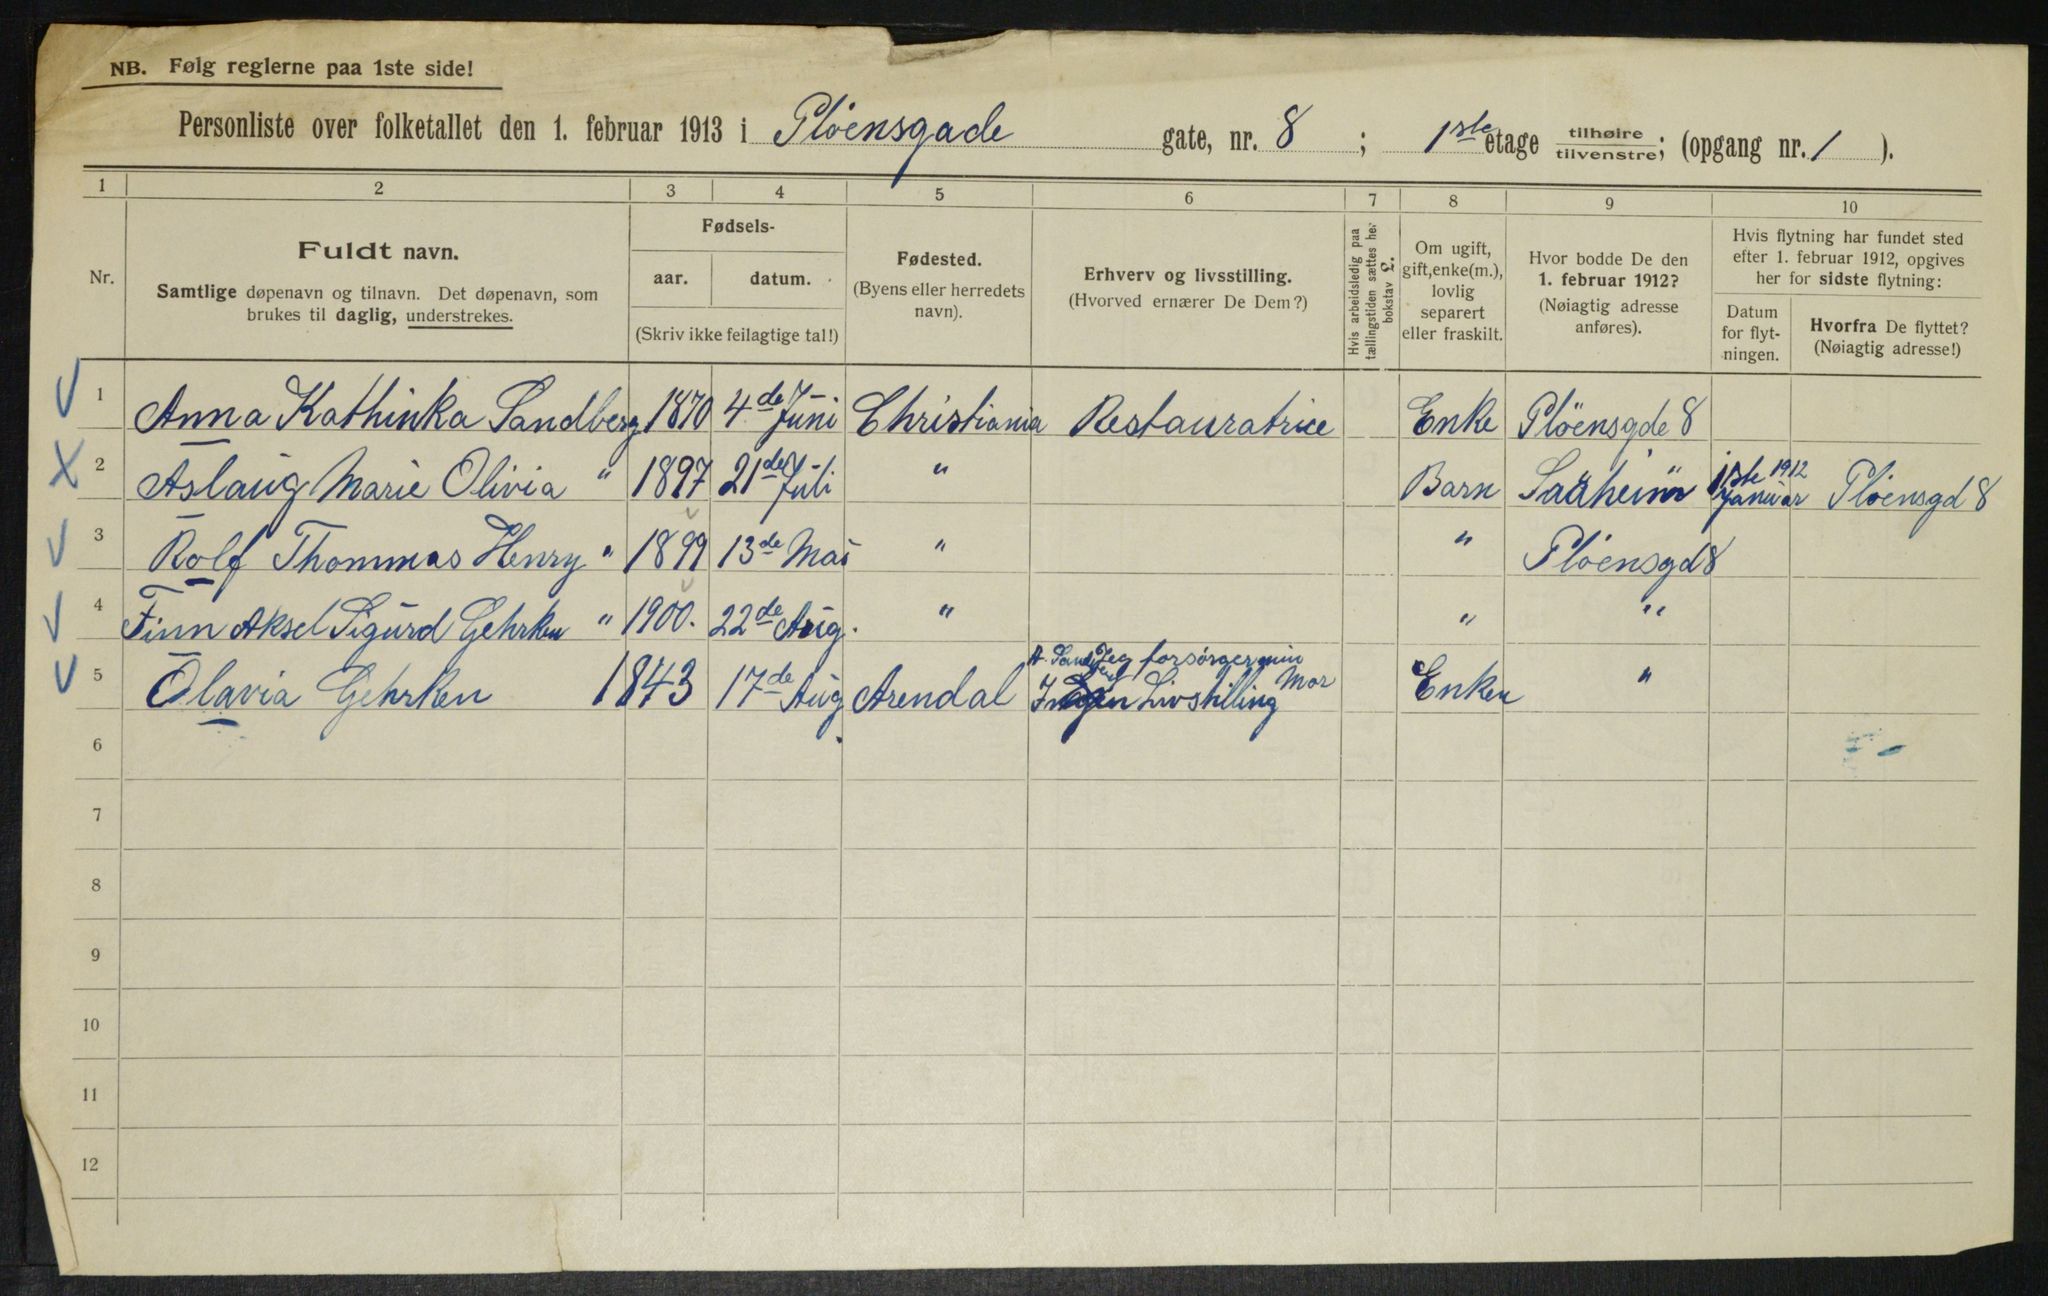 NB. Følg reglerne paa 1ste side!
Personliste over folketallet den 1. februar 1913 i Pløensgade gate, nr. 8 ; 1ste etage tilhøire tilvenstre; (opgang nr. 1 ).
1 2 3 4 5 6 7 8 9 10
Nr.
Fuldt navn.
Samtlige døpenavn og tilnavn. Det døpenavn, som
brukes til daglig, understrekes.
Fødsels-
aar. datum.
(Skriv ikke feilagtige tal!)
Fødested.
(Byens eller herredets
navn).
Erhverv og livsstilling.
(Hvorved ernærer De Dem?)
Hvis arbeidsledig paa
tællingstiden sættes her
bokstav £.
Om ugift,
gift, enke(m.),
lovlig
separert
eller fraskilt.
Hvor bodde De den
1. februar 1912?
(Nøiagtig adresse
anføres).
Hvis flytning har fundet sted
efter 1. februar 1912, opgives
her for sidste flytning:
Datum
for flyt-
ningen.
Hvorfra De flyttet?
(Nøiagtig adresse!)
1 Anna Kathinka Sandberg 1870 4de Juni Christiania Restauratrice Enke Pløensgde 8
2 Aslaug Marie Olivia " 1897 21de Juli " Barn 1ste 1912 Januar Pløensgd 8
3 Rolf Thommas Henry " 1899 13de Mai " " Pløensgd 8
4 Finn Aksel Sigurd Gehrken " 1900. 22de Aug. " " "
Jeg forsørger min
Mor
5 Olavia Gehrken 1843 17de Aug Arendal Ingen Livstilling Enken "
6
7
8
9
10
11
12